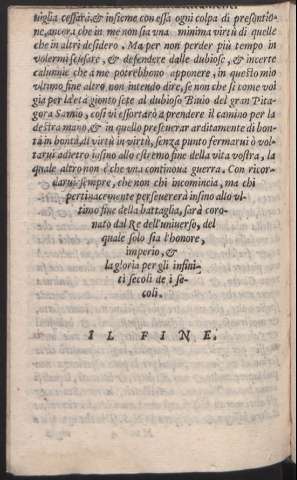 uiglia cessarà,& insieme con essa ogni colpa di presontio-
ne, ancora che in me non sia vna minima virtù di quelle
che in altri desidero. Ma per non perder più tempo in
volermi scusare, & defendere dalle dubiose, & incerte
calunnie che a me potrebbono apponere, in questo mio
vltimo fine altro non intendo dire, se non che si come vol
gia per la età gionto sete al dubioso Biuio del gran Pita-
gora Samio, cosi vi essortarò a prendere il camino per la
destra mano, & in quello perseuerar arditamente di bon-
tà in bontà, di virtù in virtù, senza punto fermarui ò vol-
tarui adietro insino allo estremo fine della vita vostra, la
quale altro non è che vna continoua guerra. Con ricor-
darui sempre, che non chi incomincia, ma chi
pertinacemente perseuererà insino allo vl-
timo fine della battaglia, sarà coro-
nato dal Re dell'uniuerso, del
quale solo sia l'honore,
imperio, &
la gloria per gli infini-
ti secoli de i se-
coli.
IL FINE.